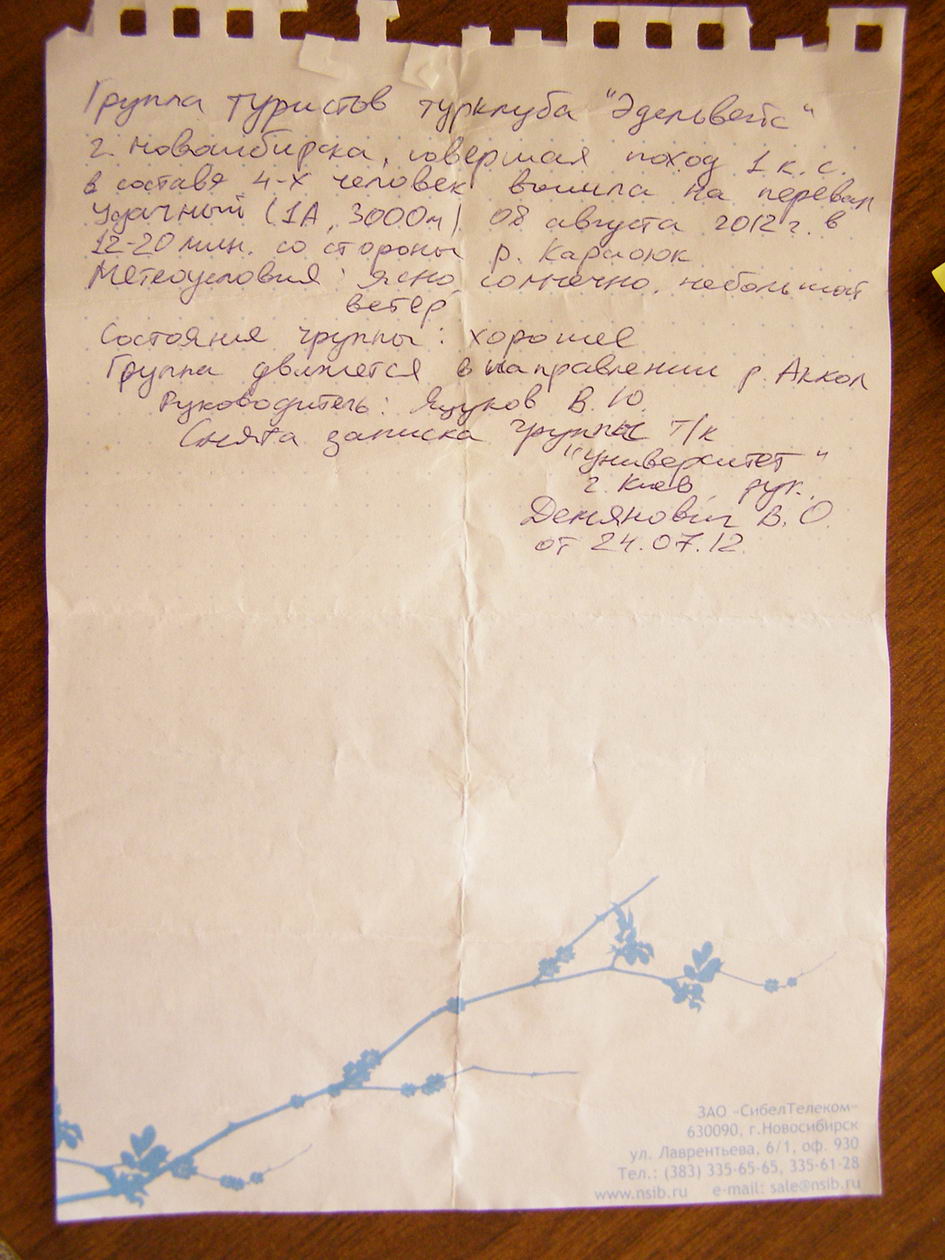 Группа туристов турклуба "Эдельвейс"
г. Новосибирска, совершая поход 1 к.с.
в составе 4-х человек вышла на перевал
Удачный (1А, 3000м) 08 августа 2012 г. в
12-20 мин. со стороны р. Караоюк
Метеоусловия: ясно, солнечно, небольшой
ветер
Состояние группы: хорошее
Группа движется в направлении р. Аккол
Руководитель: Яцуков В.Ю.
Снята записка группы т/к
"Университет"
г. Киев, рук.
Демянович В.О.
от 24.07.12
ЗАО «СибелТелеком»
630090, г.Новосибирск
ул. Лаврентьева, 6/1, оф. 930
Тел.: (383) 335-65-65, 335-61-28
www.nsib.ru e-mail: sale@nsib.ru